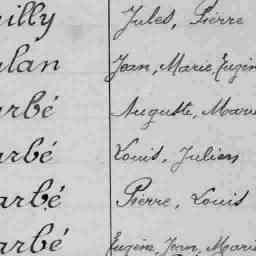 illy Jules, Pierre
lan Jean, Marie, Eugèn
arbé Auguste, Marie
arbé Louis, Julien
arbé Pierre, Louis
arbé Eugène, Jean, Marie